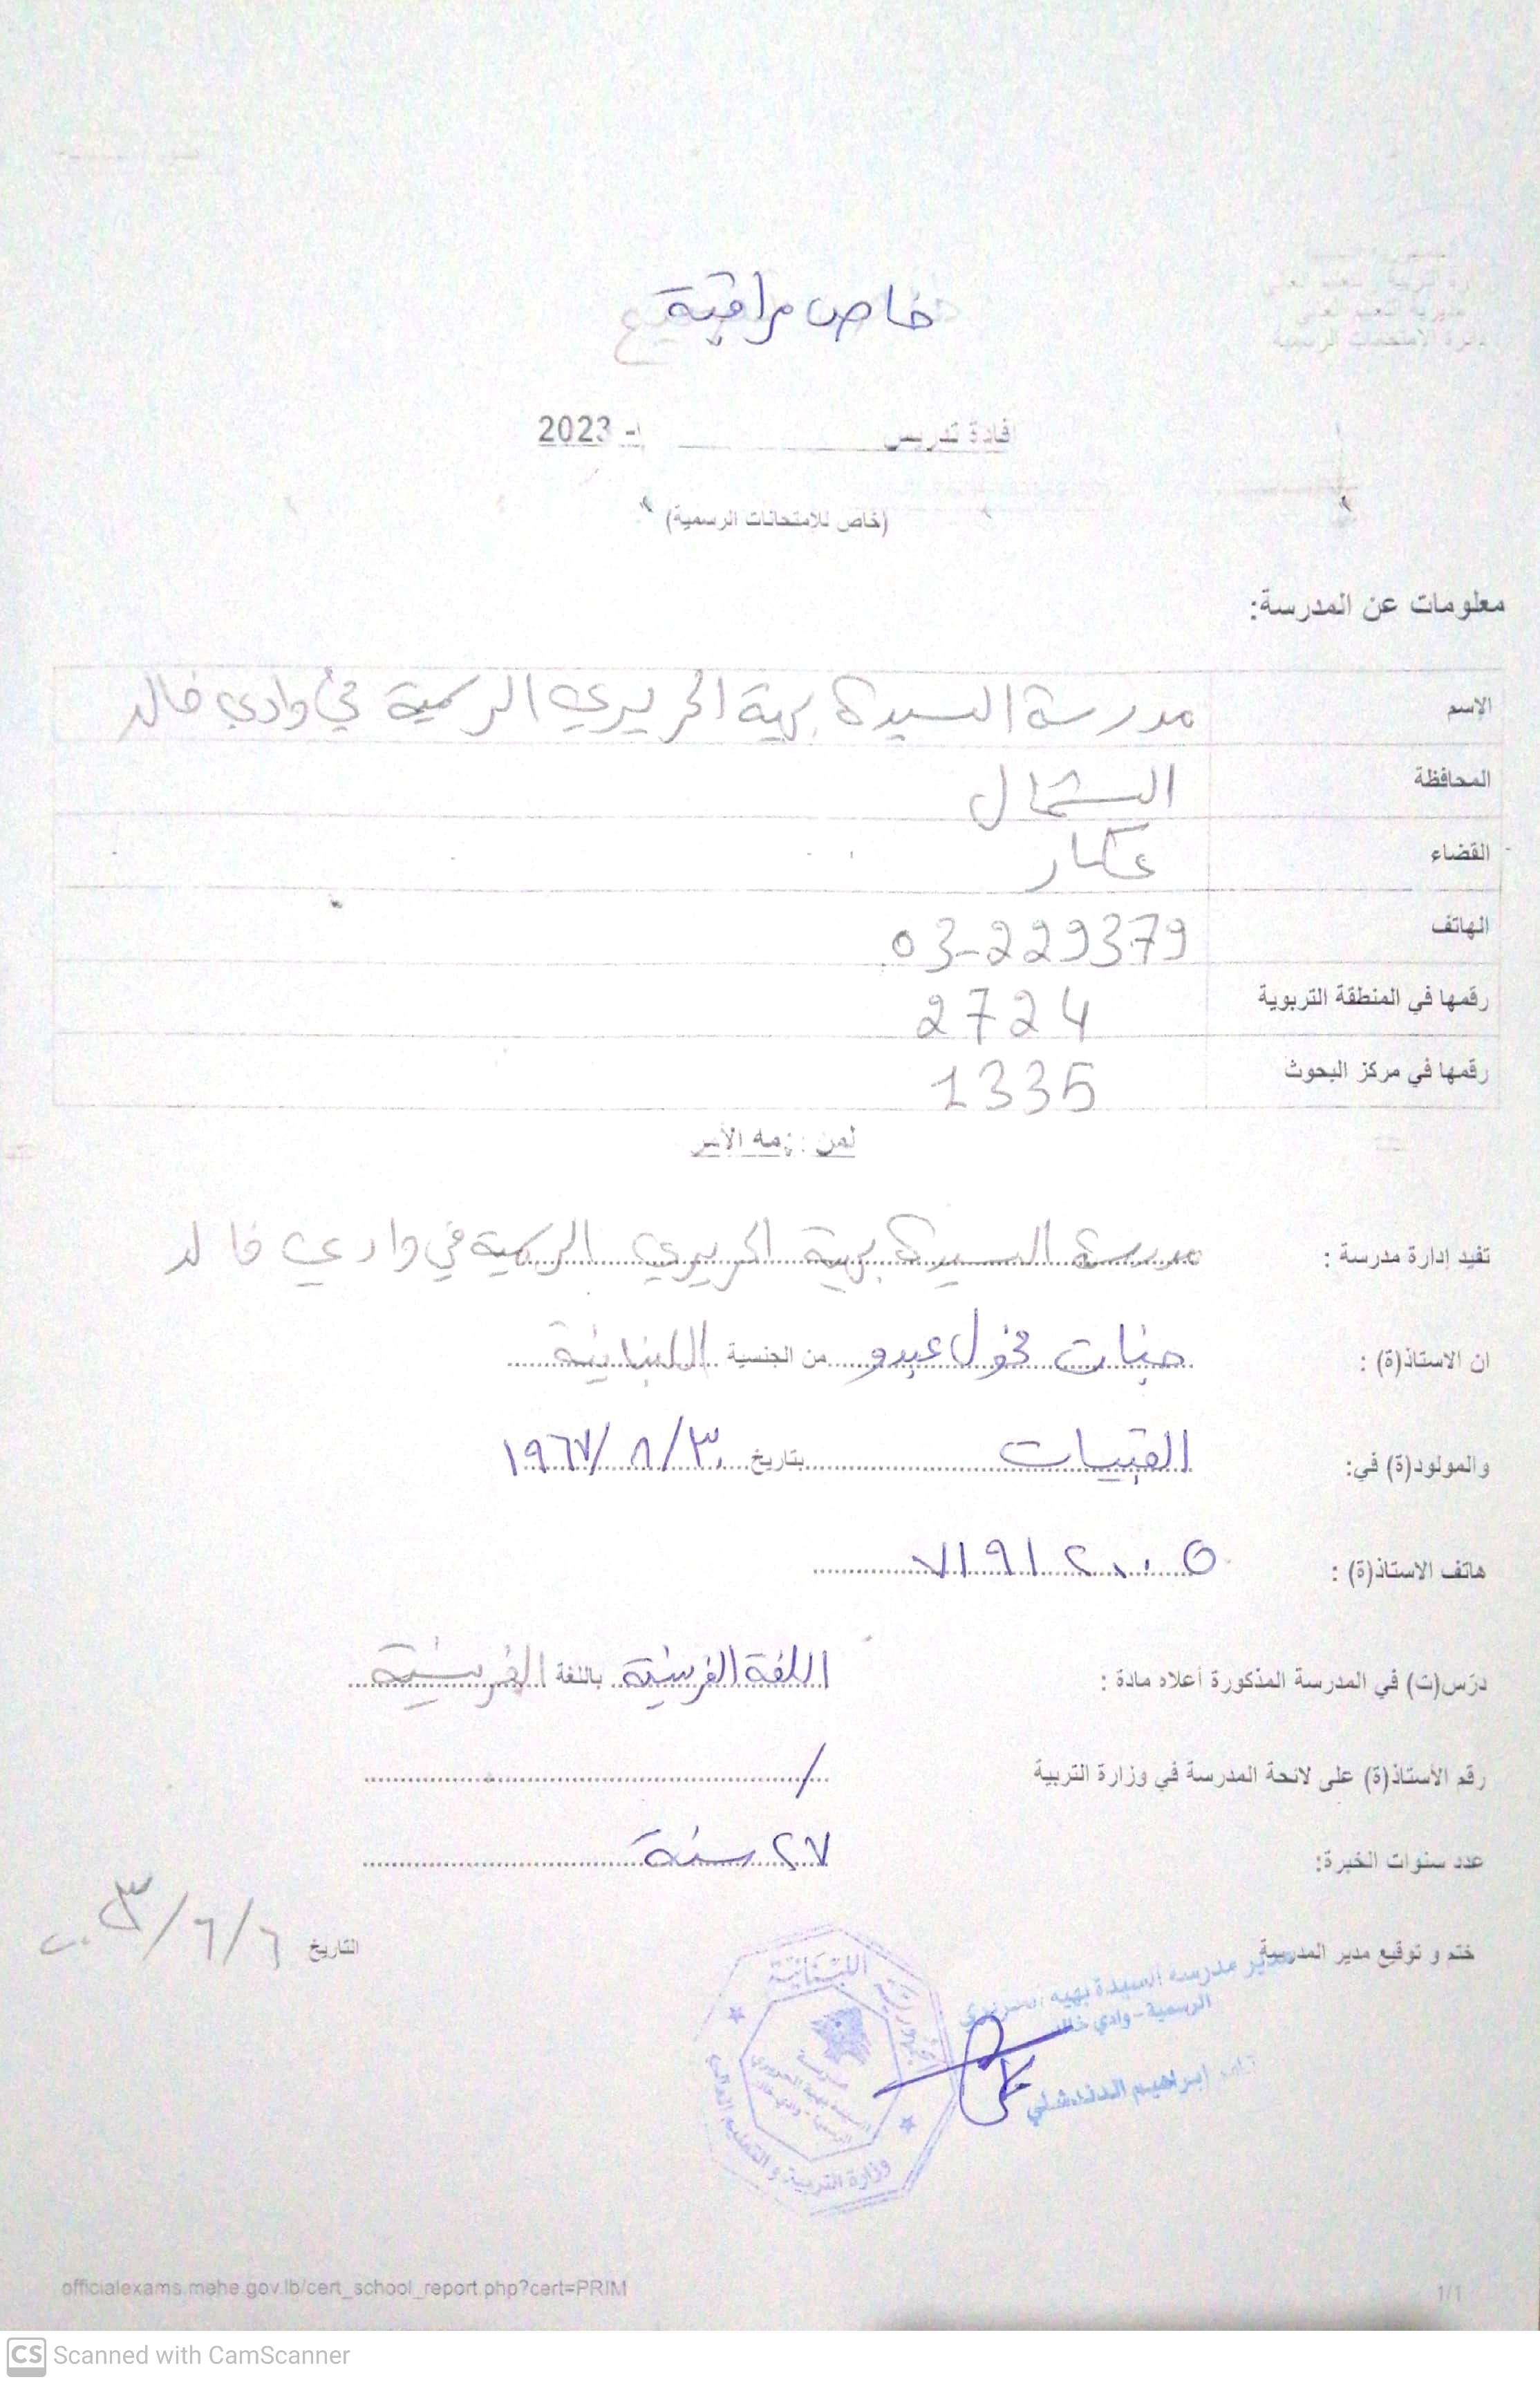 خاص مراقبة
افادة تدريس - 2023
(خاص للإمتحانات الرسمية)
معلومات عن المدرسة:
الإسم مدرسة السيدة بهية الحريري الرسمية في وادي خالد
المحافظة الشمال
القضاء عكار
الهاتف 03-229379
رقمها في المنطقة التربوية 2724
رقمها في مركز البحوث 1335
لمن يهمه الأمر
تفيد إدارة مدرسة : مدرسة السيدة بهية الحريري الرسمية في وادي خالد
ان الاستاذ(ة) : جنات مخول عبدو من الجنسية اللبنانية
والمولود(ة) في: القبيات بتاريخ ٣٠/٨/١٩٦٧
هاتف الاستاذ(ة) : ٧١٩١٢٠٠٥
درّس(ت) في المدرسة المذكورة أعلاه مادة : اللغة الفرنسية باللغة الفرنسية
رقم الأستاذ(ة) على لائحة المدرسة في وزارة التربية /
عدد سنوات الخبرة: ٢٧ سنة
ختم و توقيع مدير المدرسة التاريخ ٦/٦/٢٠٢٣
مدير مدرسة السيدة بهية الحريري
الرسمية - وادي خالد
إبراهيم الدندشلي
الجمهورية اللبنانية
مدرسة
السيدة بهية الحريري
الرسمية - وادي خالد
وزارة التربية و التعليم العالي
officialexams.mehe.gov.lb/cert_school_report.php?cert=PRIM 1/1
CS Scanned with CamScanner